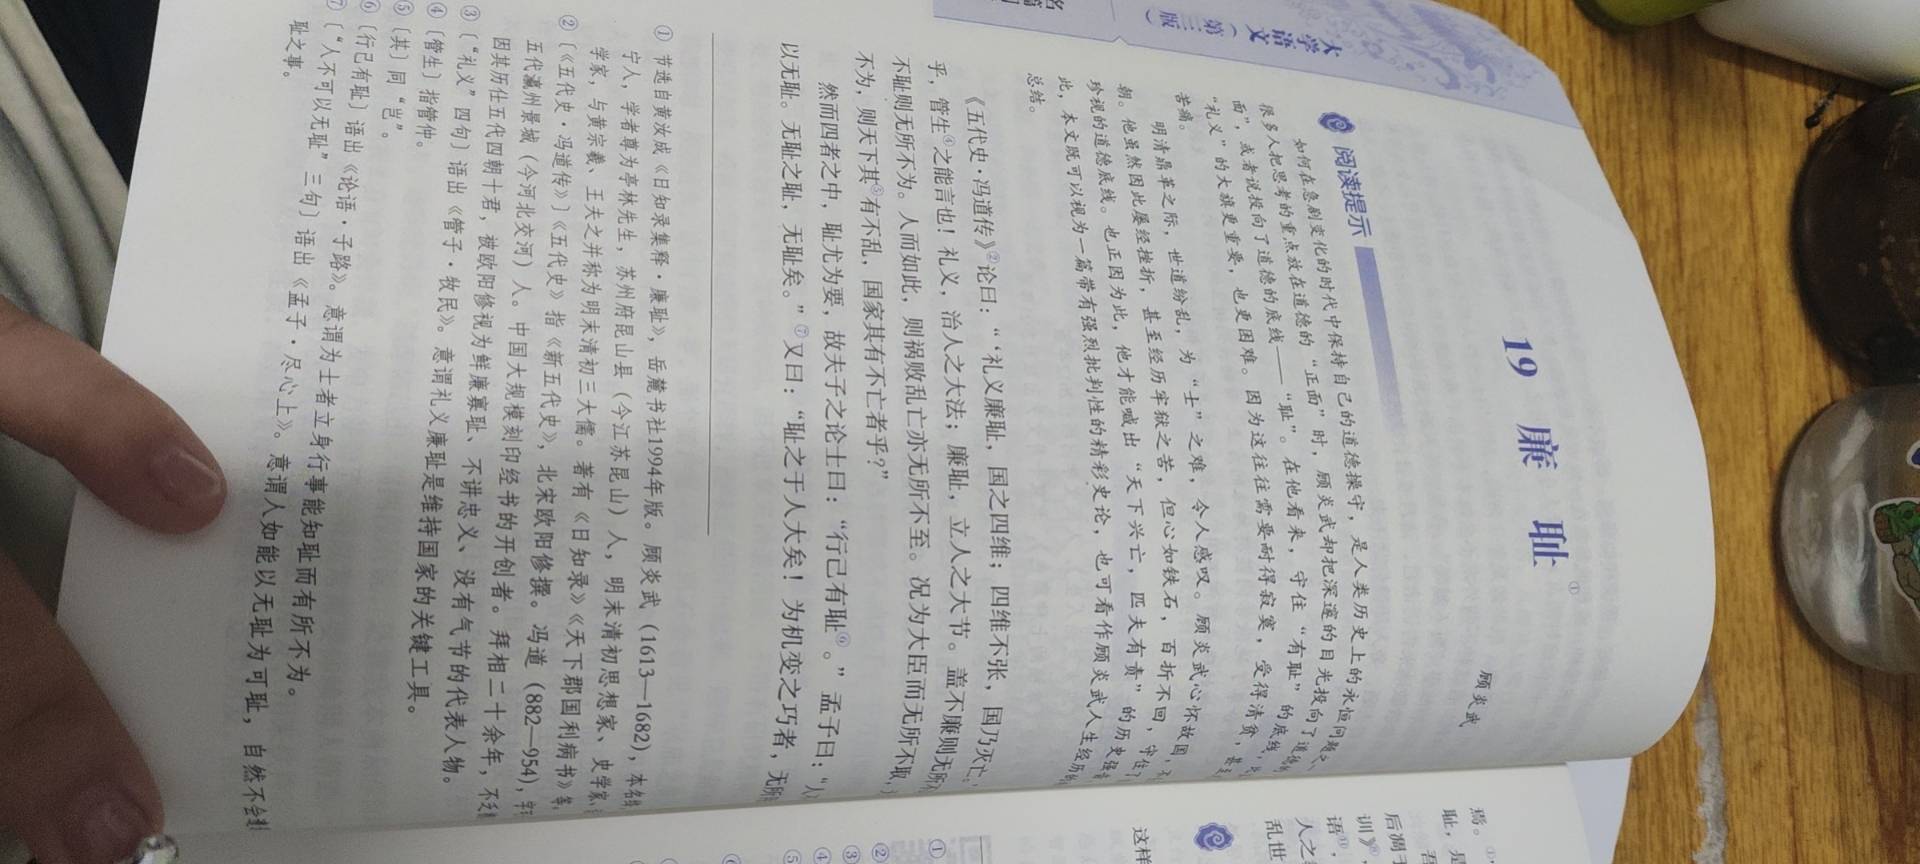 大学语文（第三版）
19 廉耻①
顾炎武
阅读提示
如何在急剧变化的时代中保持自己的道德操守，是人类历史上的永恒问题。
很多人把思考的重点放在道德的“正面”时，顾炎武却把深邃的目光投向了道德的
面”，或者说投向了道德的底线——“耻”。在他看来，守住“有耻”的底线，
“礼义”的大旗更重要，也更困难。因为这往往需要耐得寂寞，受得清贫，甚至
苦痛。
明清鼎革之际，世道纷乱，为“士”之难，令人感叹。顾炎武心怀故国，
朝。他虽然因此屡经挫折，甚至经历牢狱之苦，但心如铁石，百折不回，守住了
珍视的道德底线。也正因为此，他才能喊出“天下兴亡，匹夫有责”的历史强音
此，本文既可以视为一篇带有强烈批判性的精彩史论，也可看作顾炎武人生经历的
总结。
《五代史·冯道传》②论曰：“‘礼义廉耻，国之四维；四维不张，国乃灭亡。
乎，管生④之能言也！礼义，治人之大法；廉耻，立人之大节。盖不廉则无所
不耻则无所不为。人而如此，则祸败乱亡亦无所不至。况为大臣而无所不取，
不为，则天下其⑤有不乱，国家其有不亡者乎？”
然而四者之中，耻尤为要，故夫子之论士曰：“行己有耻⑥。”孟子曰：“人
以无耻。无耻之耻，无耻矣。”⑦又曰：“耻之于人大矣！为机变之巧者，无所
① 节选自黄汝成《日知录集释·廉耻》，岳麓书社1994年版。顾炎武（1613—1682），本名绛
宁人，学者尊为亭林先生，苏州府昆山县（今江苏昆山）人，明末清初思想家、史学家、
学家，与黄宗羲、王夫之并称为明末清初三大儒。著有《日知录》《天下郡国利病书》等
② 〔《五代史·冯道传》〕《五代史》指《新五代史》，北宋欧阳修撰。冯道（882—954），字
五代瀛州景城（今河北交河）人。中国大规模刻印经书的开创者。拜相二十余年，不
因其历仕五代四朝十君，被欧阳修视为鲜廉寡耻、不讲忠义、没有气节的代表人物。
③ 〔“礼义”四句〕语出《管子·牧民》。意谓礼义廉耻是维持国家的关键工具。
④ 〔管生〕指管仲。
⑤ 〔其〕同“岂”。
⑥ 〔行己有耻〕语出《论语·子路》。意谓为士者立身行事能知耻而有所不为。
⑦ 〔“人不可以无耻”三句〕语出《孟子·尽心上》。意谓人如能以无耻为可耻，自然不会
耻之事。
焉。
耻，是
吾
后凋于
训》
语
人之
乱世
这样
①
②
③
④
⑤
⑥